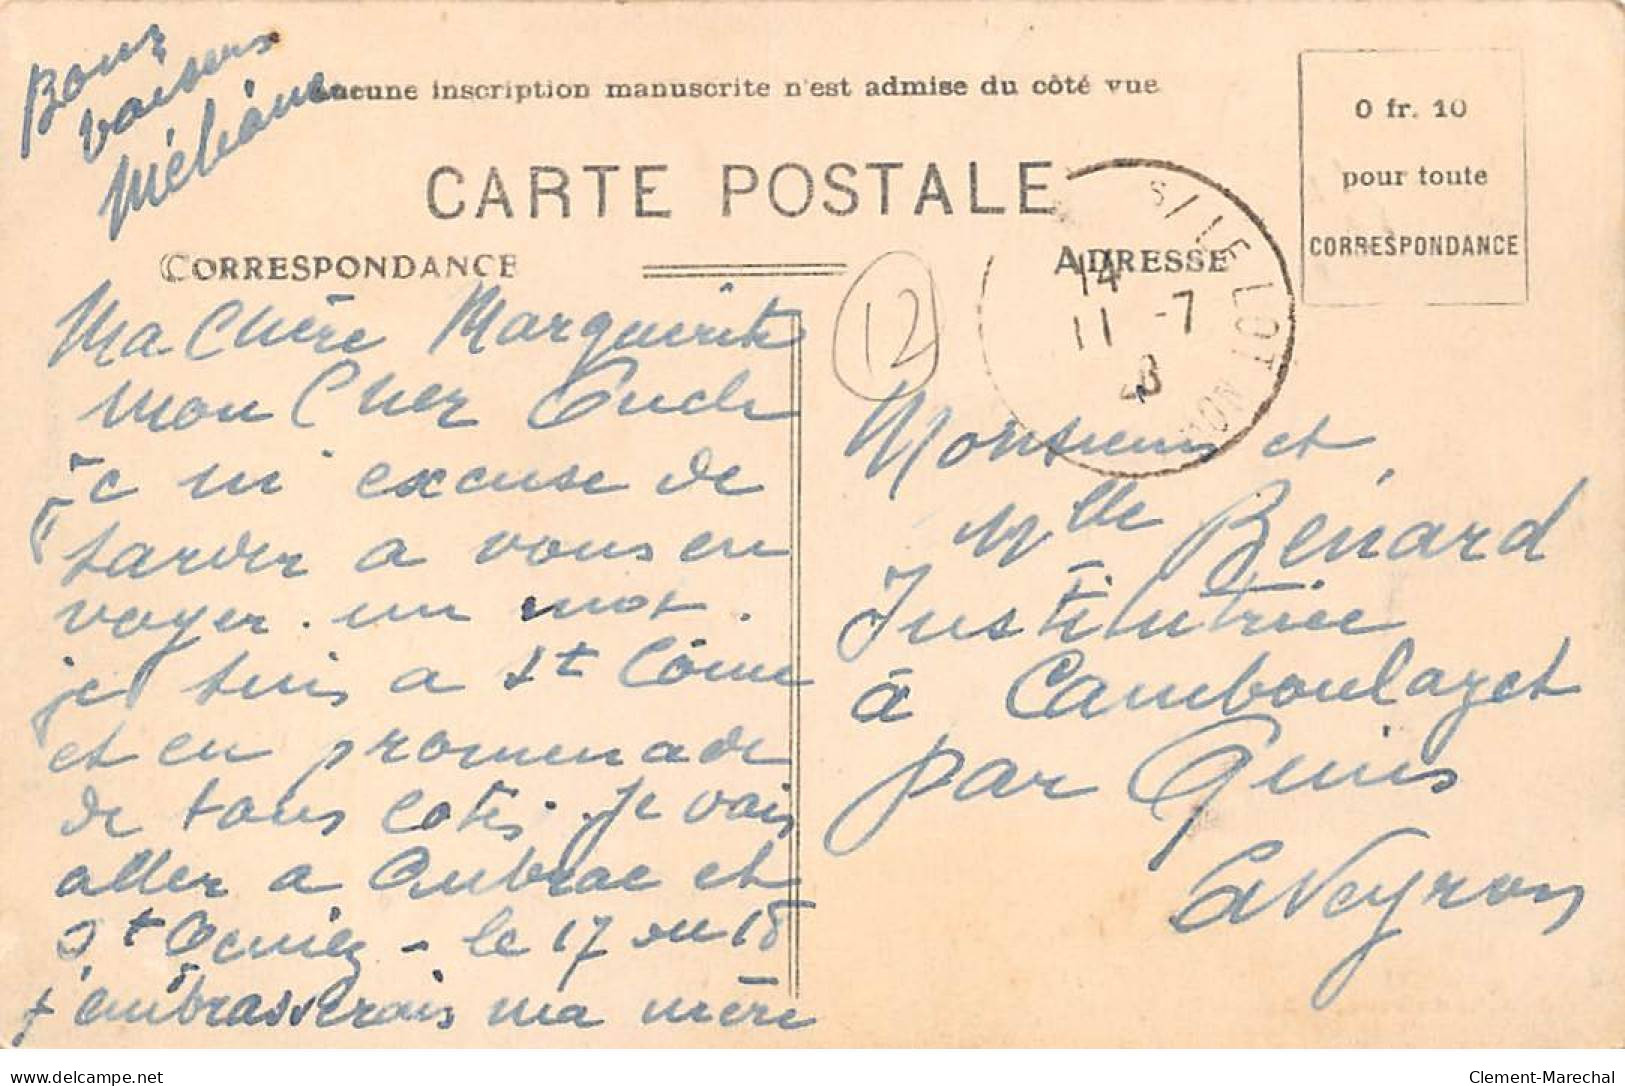 Bons
baisers
Aucune inscription manuscrite n'est admise du côté vue
CARTE POSTALE
CORRESPONDANCE
ADRESSE
0 fr. 10
pour toute
CORRESPONDANCE
S/LE LOT
14
11 -7
12
Ma Chère Marguerite
Mon Cher Oncle
je m'excuse de
tarder a vous en
voyer. un mot.
je suis a St Côme
et en promenade
de tous cotés. Je vais
aller a Aubrac et
St Geniez - le 17 ou 18
j'embrasserais ma mère
Monsieur et
Mlle Bénard
Institutrice
à Camboulazet
par Quins
Aveyron
delcampe.net
Clement-Marechal